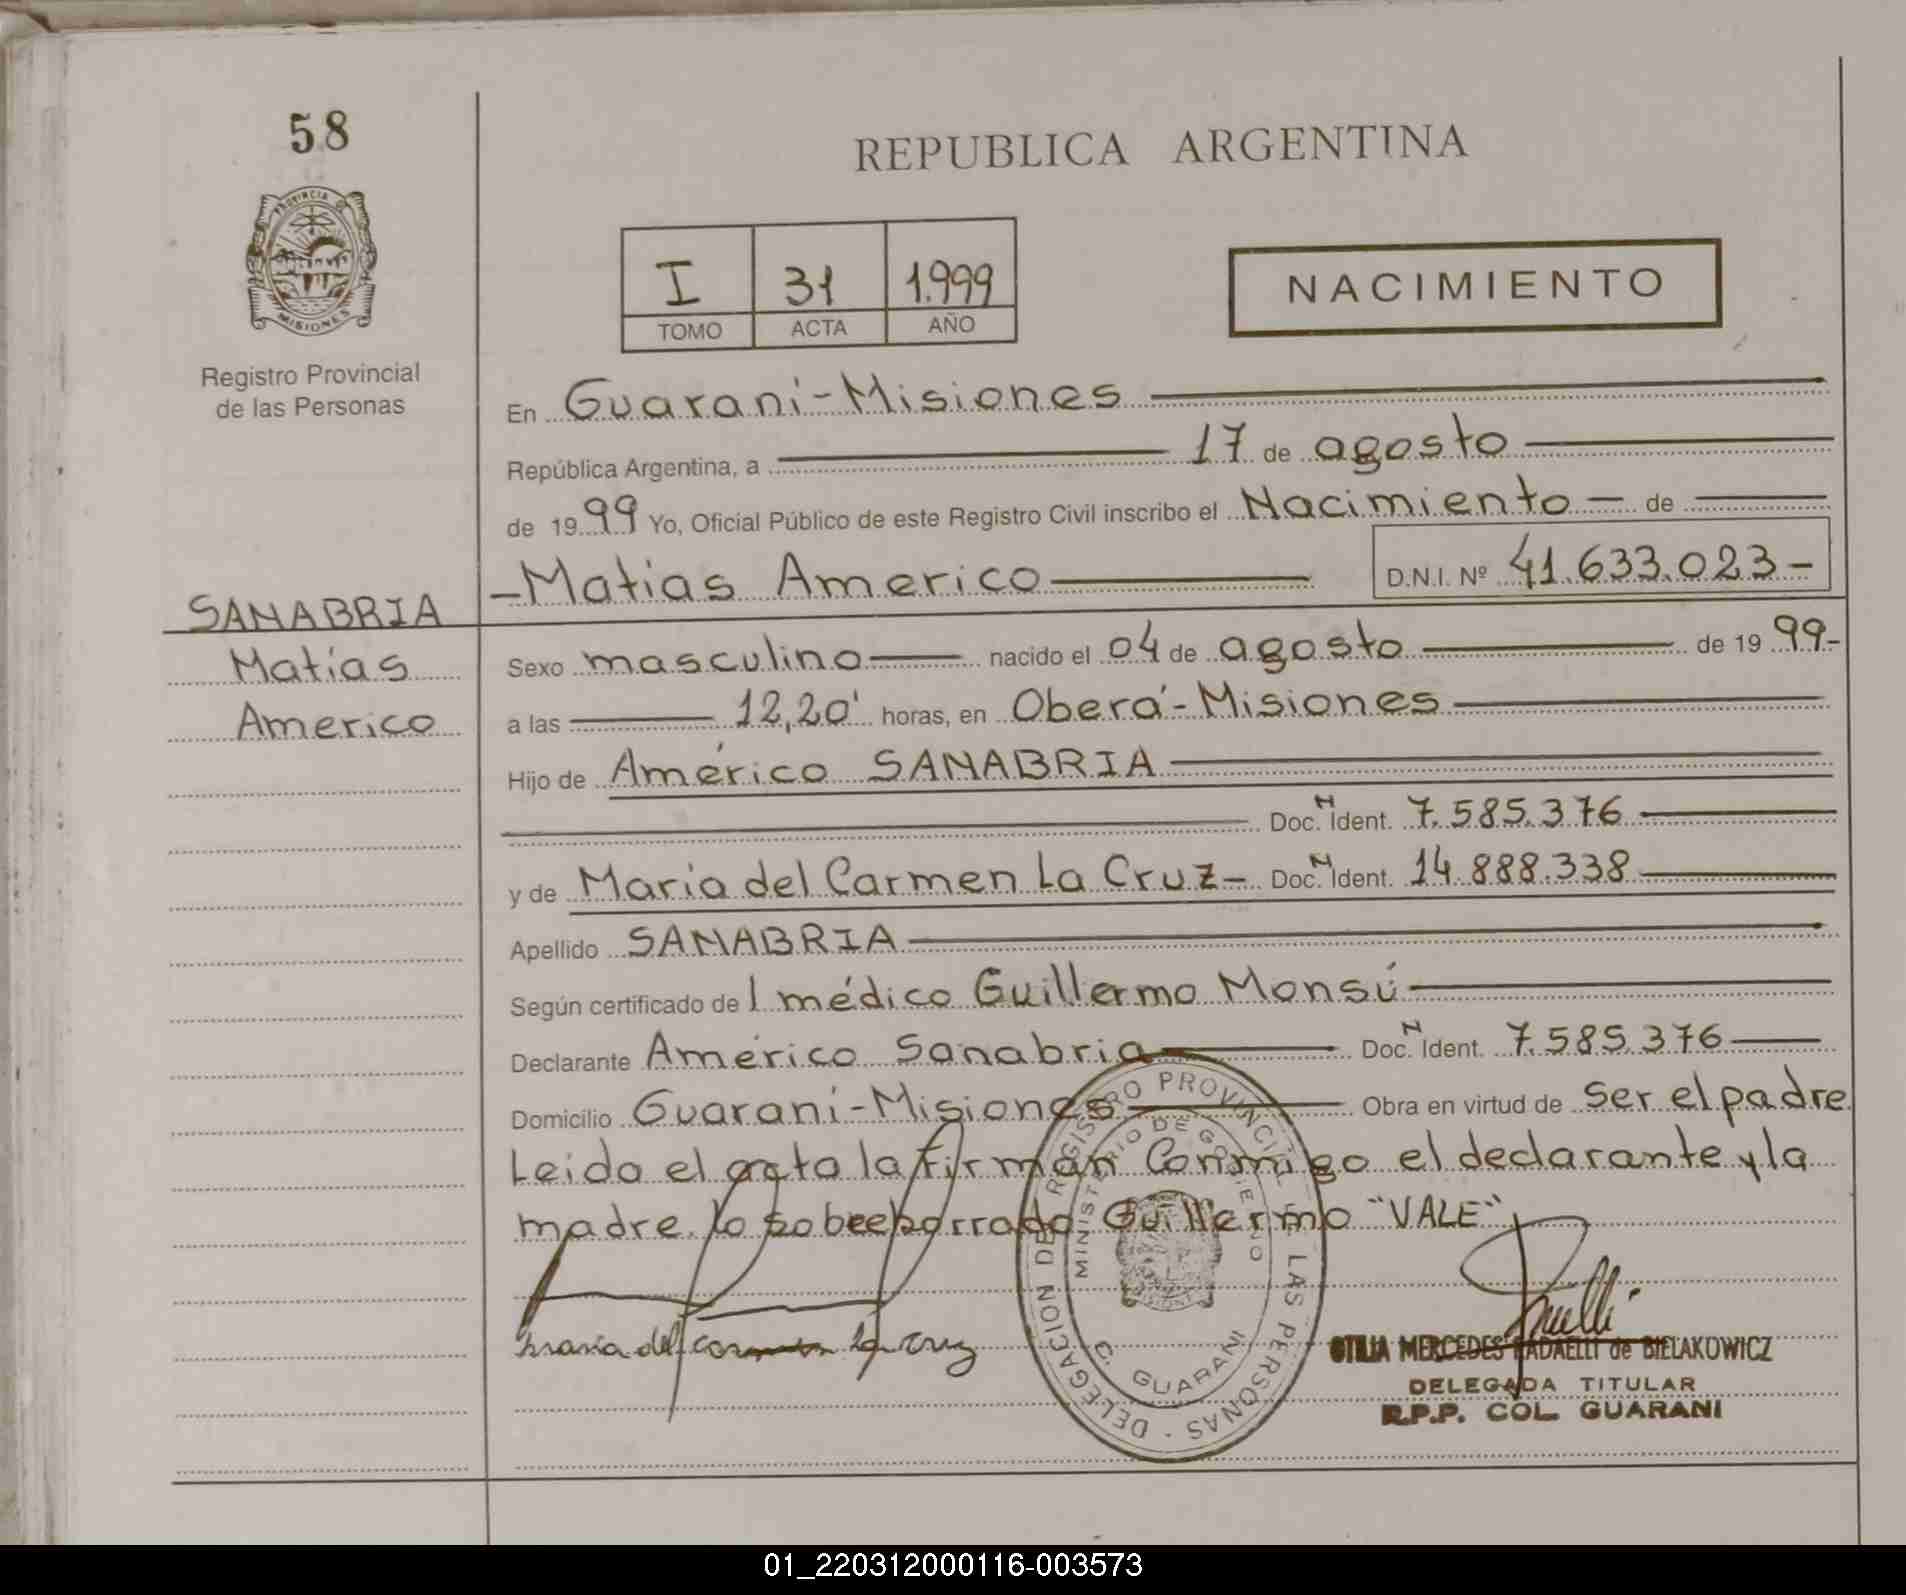 58
PROVINCIA DE
MISIONES
Registro Provincial
de las Personas
SANABRIA
Matías
Americo
REPUBLICA ARGENTINA
I 31 1.999
TOMO ACTA AÑO
NACIMIENTO
En Guaraní - Misiones
República Argentina, a 17 de agosto
de 1999 Yo, Oficial Público de este Registro Civil inscribo el Nacimiento - de
- Matias Americo D.N.I. Nº 41.633.023 -
Sexo masculino nacido el 04 de agosto de 1999-
a las 12,20' horas, en Oberá - Misiones
Hijo de Américo SANABRIA
Doc. N Ident. 7.585.376
y de María del Carmen La Cruz - Doc. N Ident. 14.888.338
Apellido SANABRIA
Según certificado del médico Guillermo Monsú
Declarante Américo Sanabria Doc. N Ident. 7.585.376
Domicilio Guaraní - Misiones Obra en virtud de ser el padre
Leido el acta la firman Conmigo el declarante y la
madre. lo sobreborrado Guillermo "VALE"
maria del carmen la cruz
DELEGACION DEL REGISTRO PROVINCIAL DE LAS PERSONAS -
MINISTERIO DE GOBIERNO
C. GUARANI
OTILIA MERCEDES RADAELLI de BIELAKOWICZ
DELEGADA TITULAR
R.P.P. COL. GUARANI
01_220312000116-003573